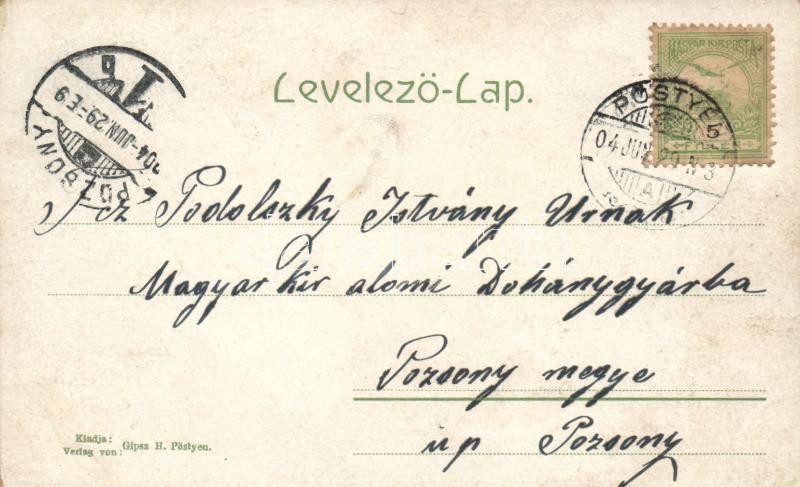 Levelező-Lap.
MAGYAR KIR. POSTA
5
PÖSTYÉN
04 JUN
N 3
A
POZSONY
904-JUN.29-E9
1
Podolszky Istvány Urnak
Magyar kir alomi Dohánygyárba
Pozsony megye
up Pozsony
Kiadja:
Verlag von: Gipsz H. Pöstyen.